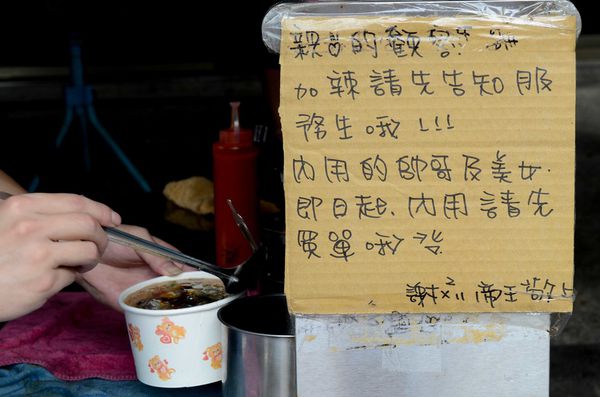 親的顧客
加辣請先告知服
務生哦!!!
內用的帥哥及美女.
即日起.內用請先
買單哦
謝 帝王敬上